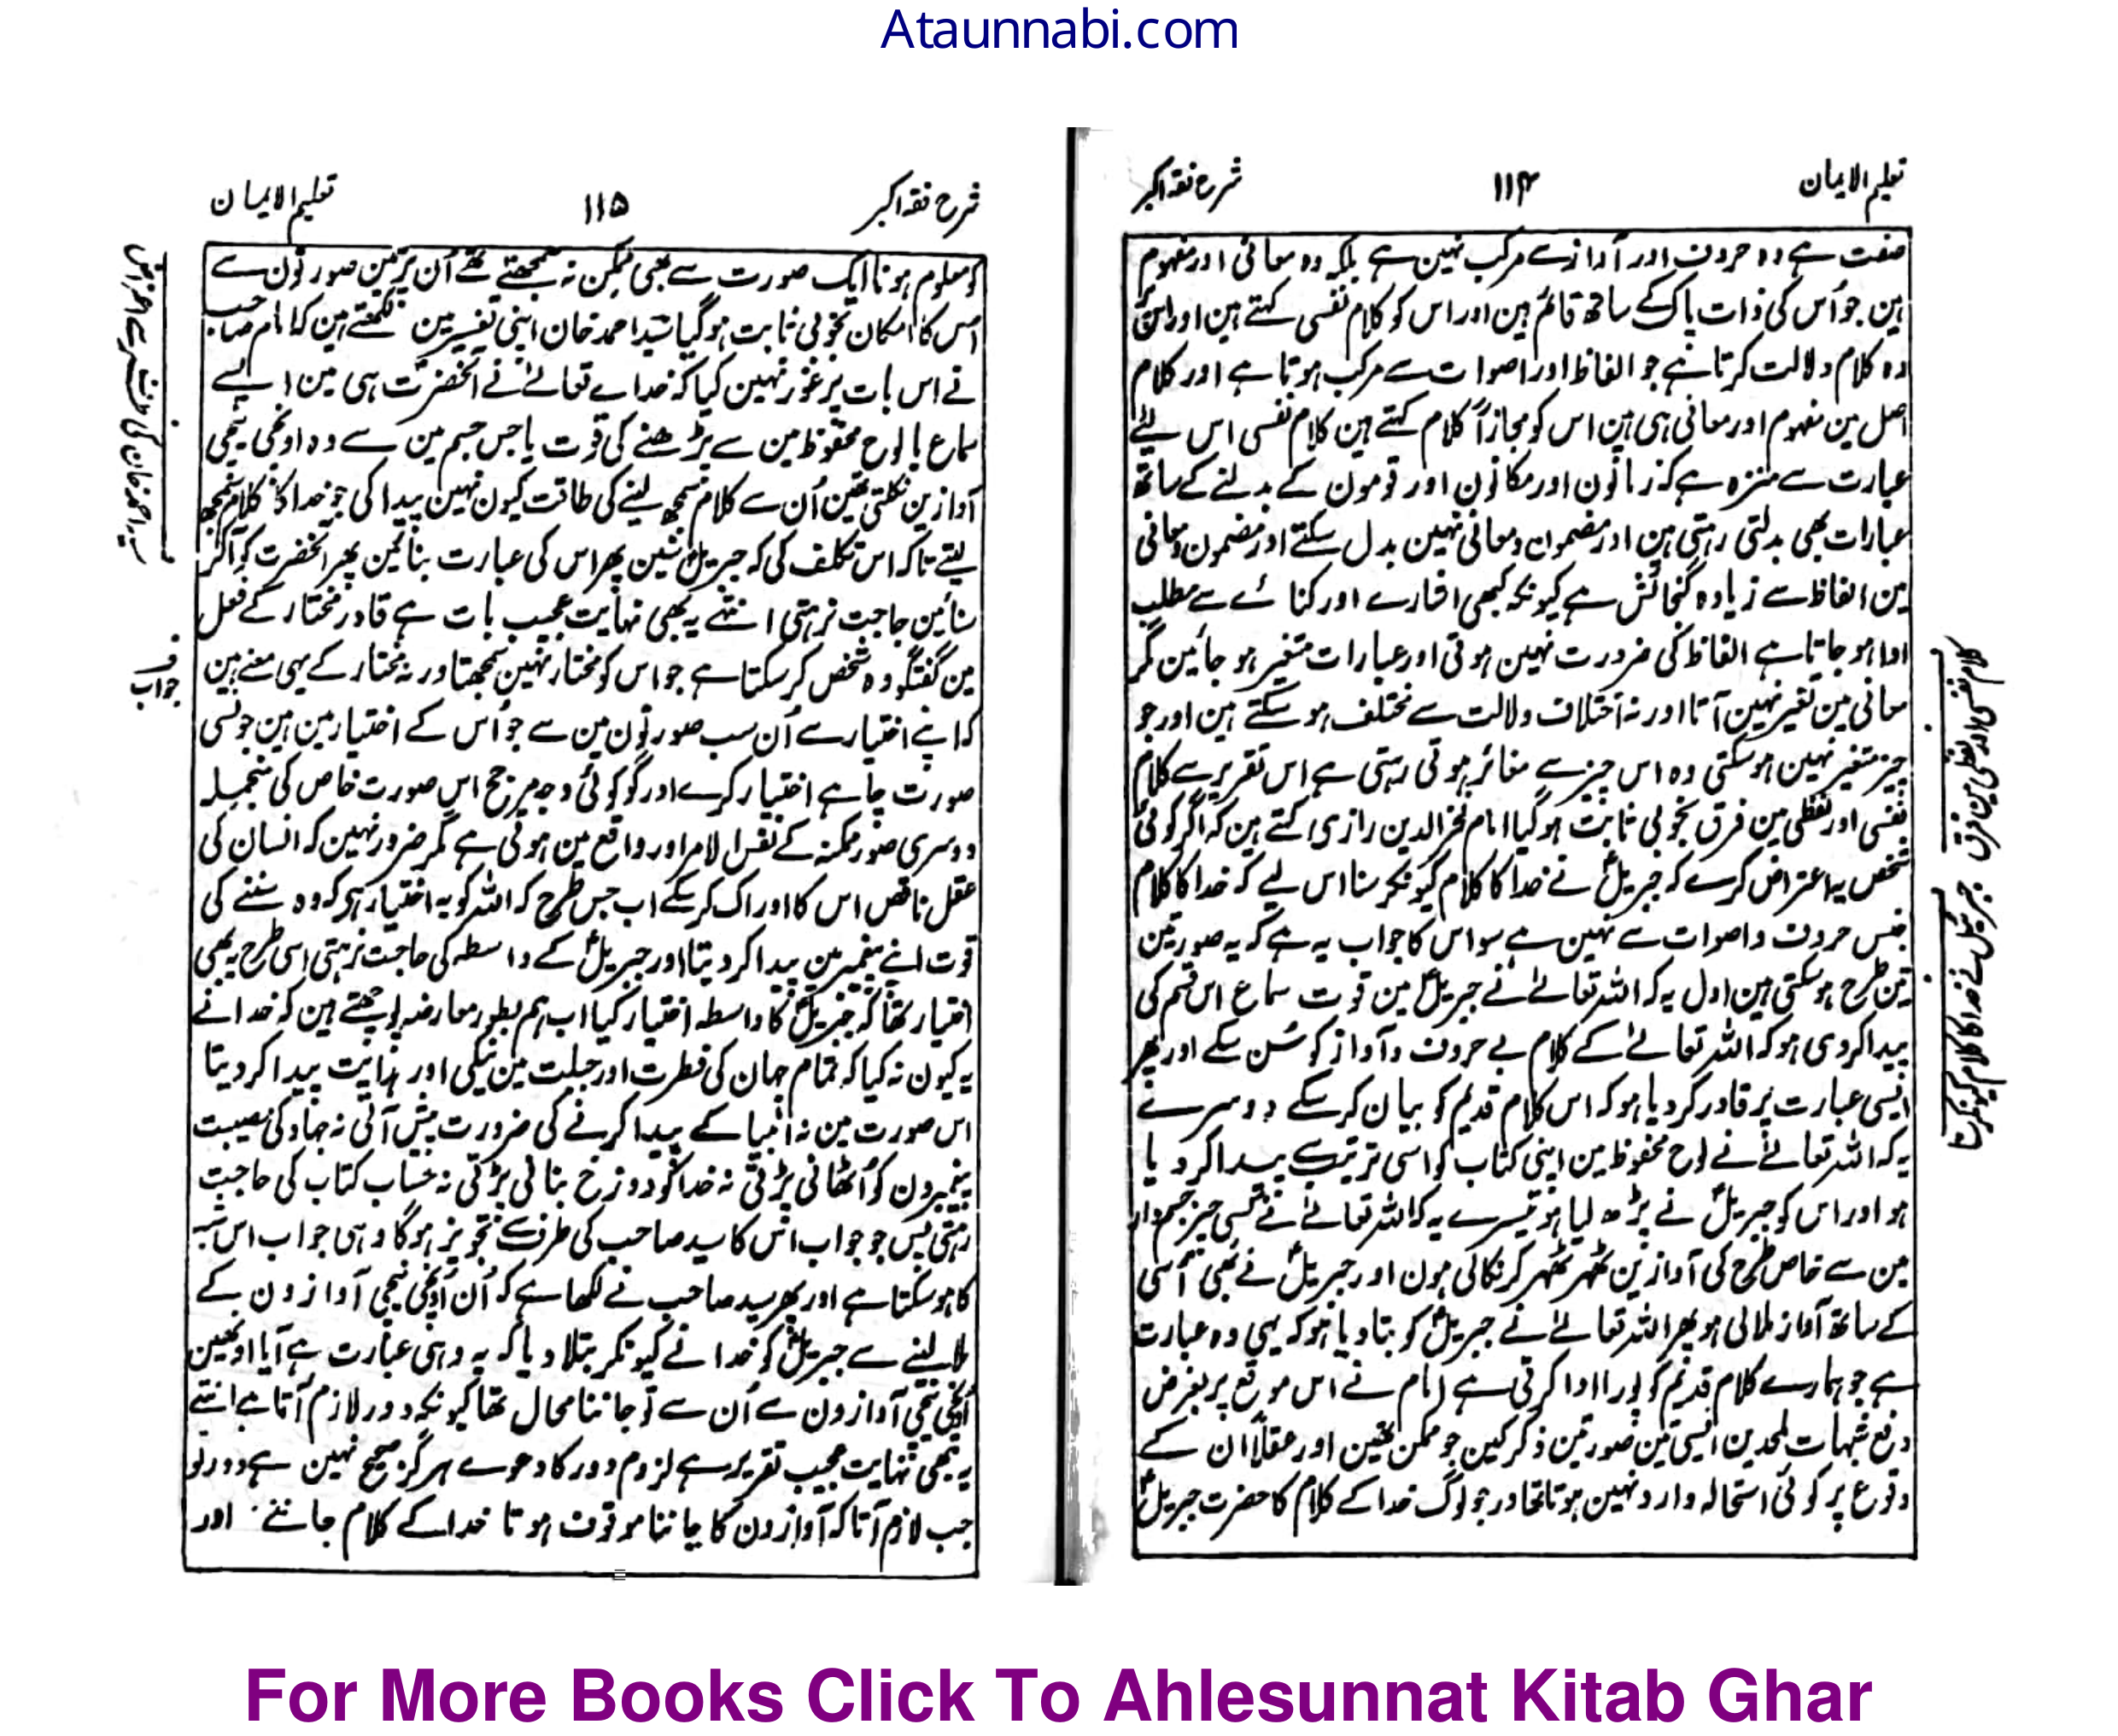 Ataunnabi.com
تعلیم الایمان
۱۱۴
شرح فقہ اکبر
صفت ہے وہ حروف اور آواز سے مرکب نہین ہے بلکہ وہ معانی اور مفہوم
ہین جو اُس کی ذات پاک کے ساتھ قائم ہین اور اس کو کلام نفسی کہتے ہین اور اس
وہ کلام دلالت کرتا ہے جو الفاظ اور اصوات سے مرکب ہوتا ہے اور کلام
اصل مین مفہوم اور معانی ہی ہین اس کو مجازاً کلام کہتے ہین کلام نفسی اس لیے
عبارت سے منزہ ہے کہ زمانون اور مکانون اور قومون کے بدلنے کے ساتھ
عبارات بھی بدلتی رہتی ہین اور مضمون ومعانی نہین بدل سکتے اور مضمون ومعانی
مین الفاظ سے زیادہ گنجائش ہے کیونکہ کبھی اشارے اور کنائے سے مطلب
ادا ہو جاتا ہے الفاظ کی ضرورت نہین ہوتی اور عبارات متغیر ہو جائین مگر
معانی مین تغیر نہین آتا اور نہ اختلاف دلالت سے مختلف ہو سکتے ہین اور جو
چیز متغیر نہین ہو سکتی وہ اس چیز سے مغائر ہوتی رہتی ہے اس تقریر سے کلام
نفسی اور لفظی مین فرق بخوبی ثابت ہوگیا امام فخر الدین رازی کہتے ہین کہ اگر کوئی
شخص یہ اعتراض کرے کہ جبریلؑ نے خدا کا کلام کیونکر سنا اس لیے کہ خدا کا کلام
جنس حروف واصوات سے نہین ہے سو اس کا جواب یہ ہے کہ یہ صورتین
تین طرح ہو سکتی ہین اول یہ کہ اللہ تعالےٰ نے جبریلؑ مین قوت سماع اس قسم کی
پیدا کردی ہو کہ اللہ تعالےٰ کے کلام بے حروف وآواز کو سُن سکے اور پھر
ایسی عبارت پر قادر کردیا ہو کہ اس کلام قدیم کو بیان کر سکے دوسرے
یہ کہ اللہ تعالےٰ نے لوح محفوظ مین اپنی کتاب کو اسی ترتیب سے پیدا کر دیا
ہو اور اس کو جبریلؑ نے پڑھ لیا ہو تیسرے یہ کہ اللہ تعالےٰ نے کسی چیز جسم دار
مین سے خاص طرح کی آوازین ٹھہر ٹھہر کر نکالی ہون اور جبریلؑ نے بھی اُسی
کے ساتھ آواز ملالی ہو پھر اللہ تعالےٰ نے جبریلؑ کو بتادیا ہو کہ یہی وہ عبارت
ہے جو ہمارے کلام قدیم کو پورا ادا کرتی ہے امام نے اس موقع پر بغرض
دفع شبہات ملحدین ایسی تین صورتین ذکر کین جو ممکن تھین اور عقلاً ان کے
وقوع پر کوئی استحالہ وارد نہین ہوتا تھا اور جو لوگ خدا کے کلام کا حضرت جبریلؑ
کلام نفسی اور لفظی مین فرق
جبرئیل نے خدا کا کلام کیونکر سنا
شرح فقہ اکبر
۱۱۵
تعلیم الایمان
کو معلوم ہونا ایک صورت سے بھی ممکن نہ سمجھتے تھے اُن پر تین صورتون سے
اُس کا امکان بخوبی ثابت ہو گیا سید احمد خان اپنی تفسیر مین لکھتے ہین کہ امام صاحب
نے اس بات پر غور نہین کیا کہ خداے تعالےٰ نے آنحضرتؐ ہی مین ایسے
سماع یا لوح محفوظ مین سے پڑھنے کی قوت یا جس جسم مین سے وہ اونچی نیچی
آوازین نکلتی تھین اُن سے کلام سمجھ لینے کی طاقت کیون نہین پیدا کی جو خدا کا کلام سمجھ
لیتے تاکہ اس تکلف کی کہ جبریلؑ سنین پھر اس کی عبارت بنائین پھر آنحضرت کو آکر
سنائین حاجت نرہتی انتہے یہ بھی نہایت عجیب بات ہے قادر مختار کے فعل
مین گفتگو وہ شخص کر سکتا ہے جو اس کو مختار نہین سمجھتا ورنہ مختار کے یہی معنے ہین
کہ اپنے اختیار سے اُن سب صورتون مین سے جو اُس کے اختیار مین ہین جونسی
صورت چاہے اختیار کرے اور گو کوئی وجہ مرجح اس صورت خاص کی منجملہ
دوسری صور ممکنہ کے نفس الامر اور واقع مین ہوتی ہے مگر ضرور نہین کہ انسان کی
عقل ناقص اس کا ادراک کر سکے اب جس طرح کہ اللہ کو یہ اختیار ہی کہ وہ سننے کی
قوت اپنے پیغمبر مین پیدا کر دیتا اور جبریلؑ کے واسطہ کی حاجت نرہتی اسی طرح یہ بھی
اختیار تھا کہ جبریلؑ کا واسطہ اختیار کیا اب ہم بطور معارضہ پوچھتے ہین کہ خدا نے
یہ کیون نہ کیا کہ تمام جہان کی فطرت اور جبلت مین نیکی اور ہدایت پیدا کر دیتا
اس صورت مین نہ انبیا کے پیدا کرنے کی ضرورت پیش آتی نہ جہاد کی مصیبت
پیغمبرون کو اُٹھانی پڑتی نہ خدا کو دوزخ بنانی پڑتی نہ حساب کتاب کی حاجت
رہتی پس جو جواب اس کا سید صاحب کی طرف سے تجویز ہوگا وہی جواب اس شبہ
کا ہو سکتا ہے اور پھر سید صاحب نے لکھا ہے کہ اُن اونچی نیچی آوازون کے
ملا لینے سے جبریلؑ کو خدا نے کیونکر بتلا دیا کہ یہ وہی عبارت ہے آیا اونھین
اونچی نیچی آوازون سے اُن سے تو جاننا محال تھا کیونکہ دور لازم آتا ہے انتہے
یہ بھی نہایت عجیب تقریر ہے لزوم دور کا دعوے ہر گز صحیح نہین ہے دور تو
جب لازم آتا کہ آوازون کا جاننا موقوف ہوتا خدا کے کلام جاننے اور
سید احمد خان کی طرف سے اعتراض
جواب
For More Books Click To Ahlesunnat Kitab Ghar